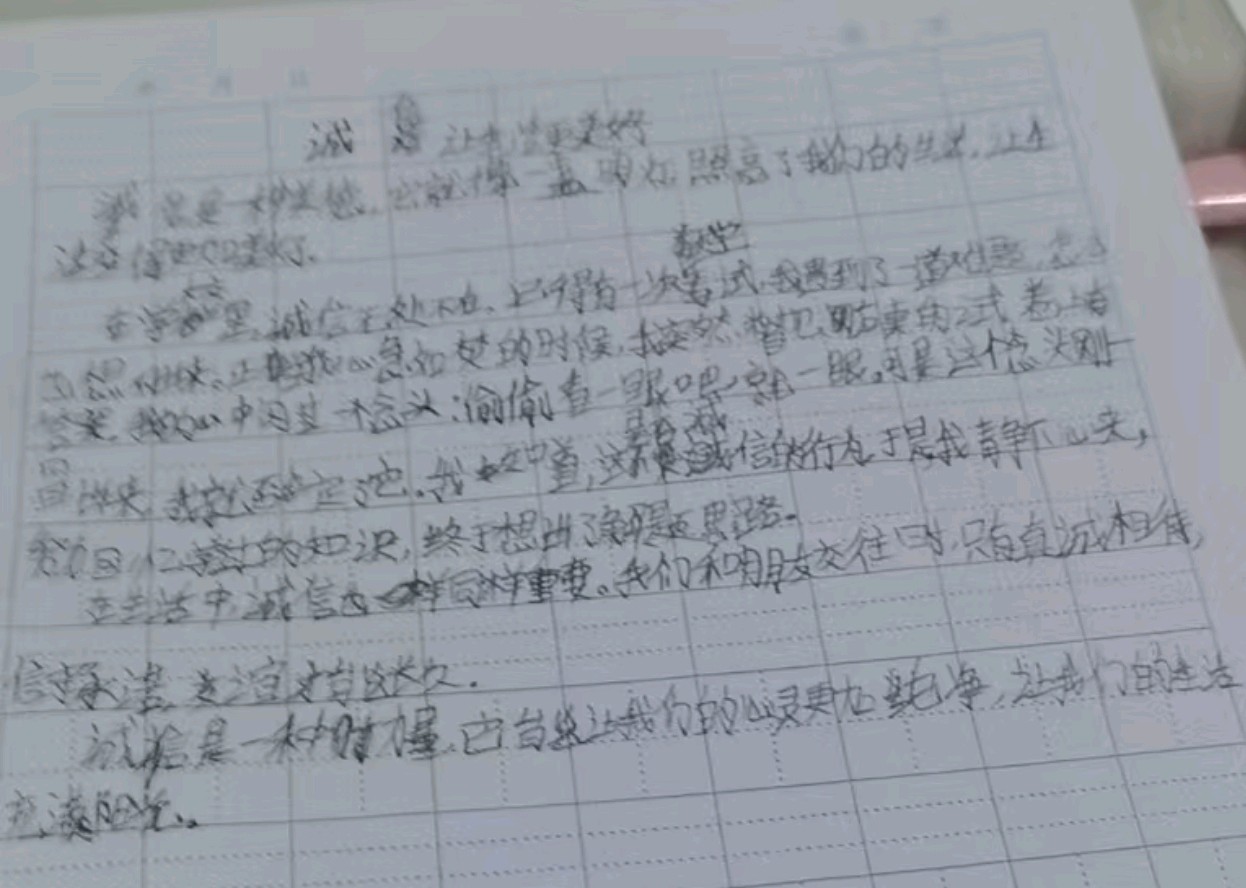 诚信让生活更美好
诚信是一种美德，它就像一盏明灯照亮了我们的生活，让生
活变得更加美好。
在学校里，诚信无处不在。记得有一次数学考试，我遇到了一道难题，怎么
也想不出来。正当我心急如焚的时候，我突然 同桌的试卷上有
答案，我的心中闪过一个念头：偷偷看一眼吧，就一眼。可是这个念头刚一
冒出来，我就否定了它。我知道，这是不诚信的行为。于是我静下心来，
努力回忆学过的知识，终于想出了解题思路。
在生活中，诚信也同样重要。我们和朋友交往时，只有真诚相待，
信守承诺，友谊才能长久。
诚信是一种力量，它能让我们的心灵更加纯净，让我们的生活
充满阳光。